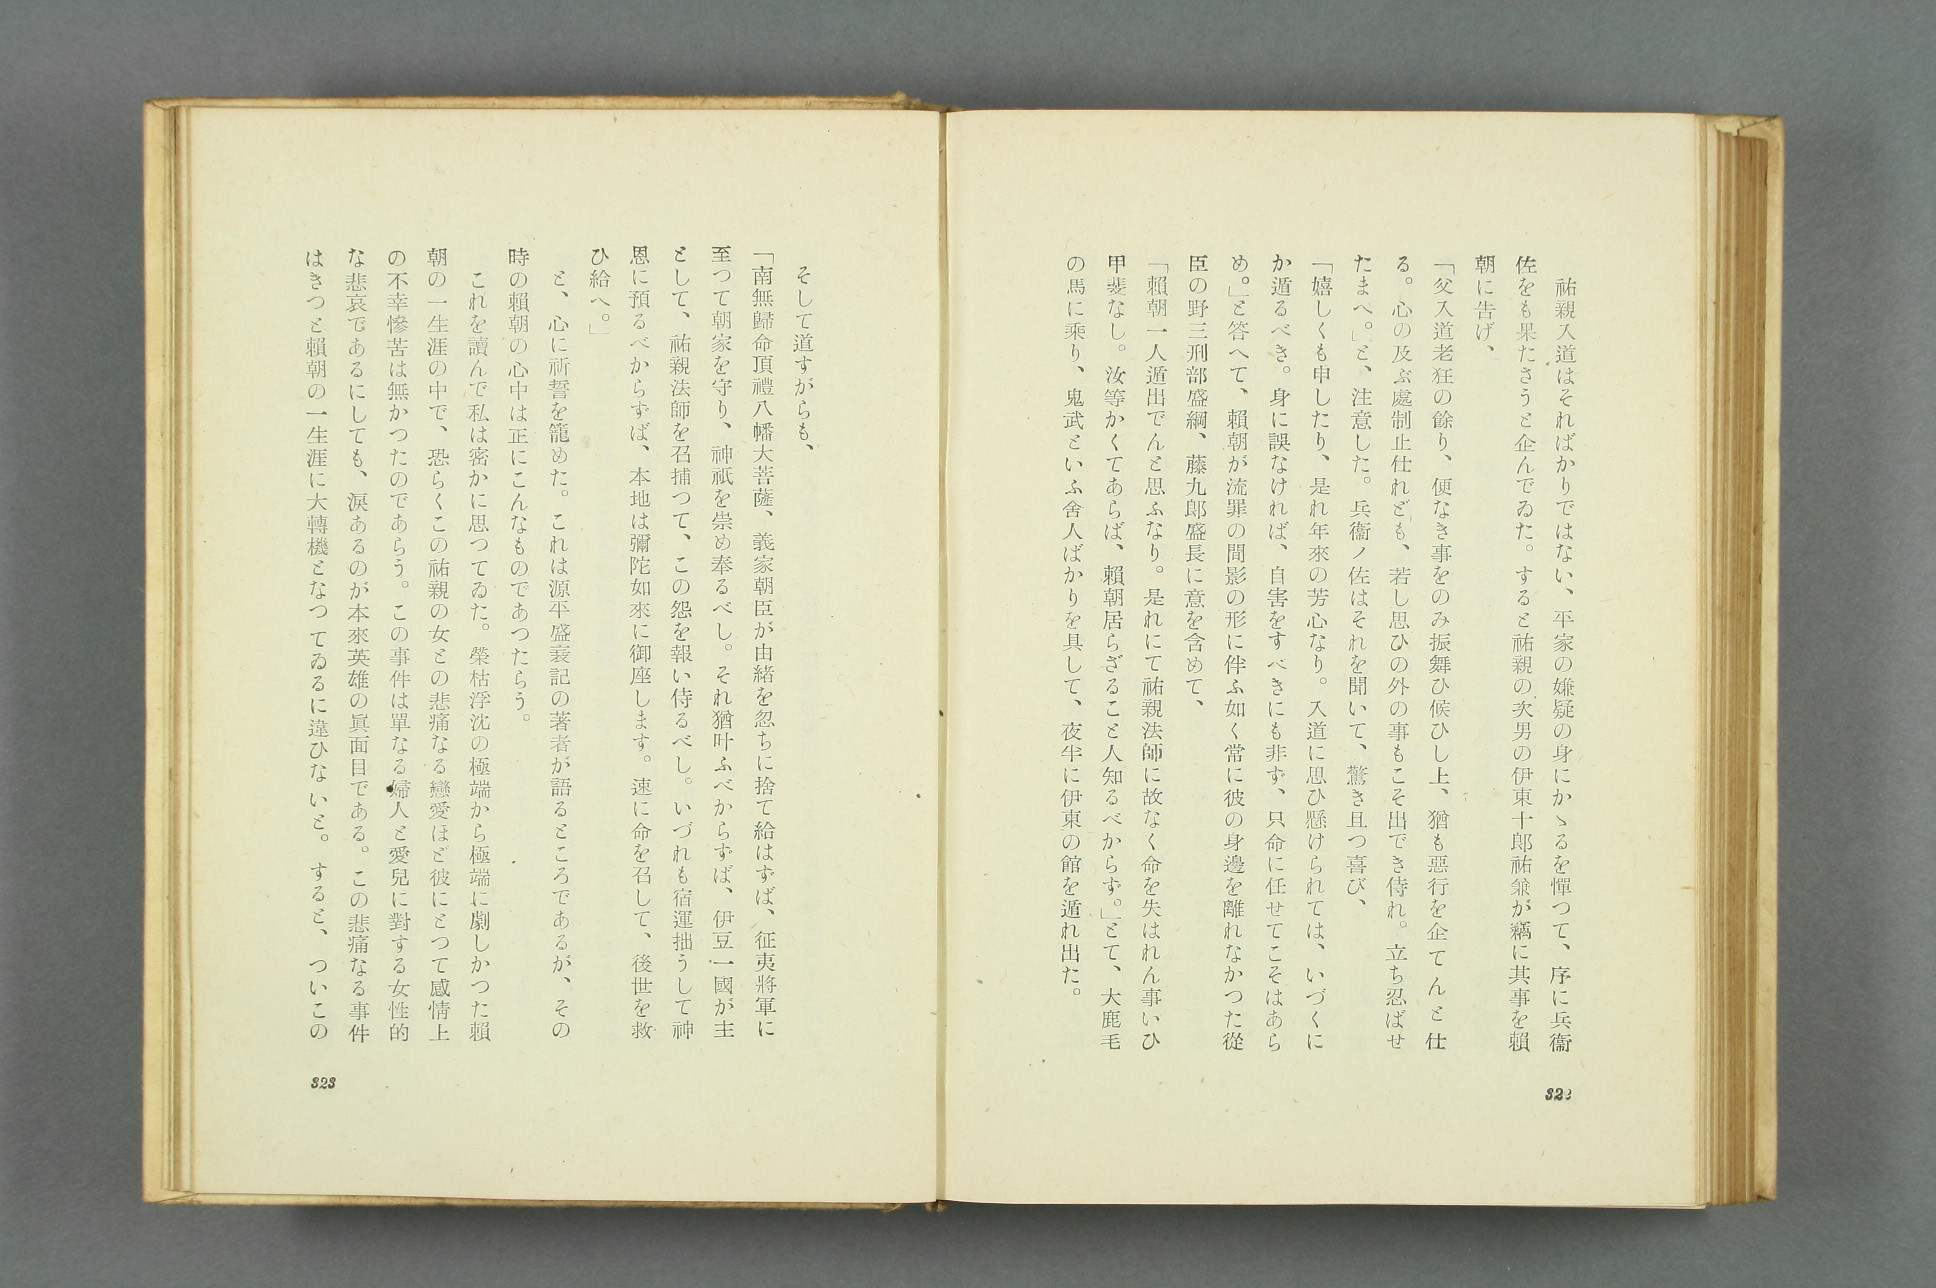 祐親入道はそればかりではない、平家の嫌疑の身にかゝるを憚つて、序に兵衞
佐をも果たさうと企んでゐた。すると祐親の次男の伊東十郎祐兼が竊に其事を賴
朝に告げ、
「父入道老狂の餘り、便なき事をのみ振舞ひ候ひし上、猶も惡行を企てんと仕
る。心の及ぶ處制止仕れども、若し思ひの外の事もこそ出でき侍れ。立ち忍ばせ
たまへ。」と、注意した。兵衞ノ佐はそれを聞いて、驚き且つ喜び、
「嬉しくも申したり、是れ年來の芳心なり。入道に思ひ懸けられては、いづくに
か遁るべき。身に誤なければ、自害をすべきにも非ず、只命に任せてこそはあら
め。」と答へて、賴朝が流罪の間影の形に伴ふ如く常に彼の身邊を離れなかつた從
臣の野三刑部盛綱、藤九郞盛長に意を含めて、
「賴朝一人遁出でんと思ふなり。是れにて祐親法師に故なく命を失はれん事いひ
甲斐なし。汝等かくてあらば、賴朝居らざること人知るべからず。」とて、大鹿毛
の馬に乘り、鬼武といふ舍人ばかりを具して、夜半に伊東の館を遁れ出た。
322
そして道すがらも、
「南無歸命頂禮八幡大菩薩、義家朝臣が由緒を忽ちに捨て給はずば、征夷將軍に
至つて朝家を守り、神祇を崇め奉るべし。それ猶叶ふべからずば、伊豆一國が主
として、祐親法師を召捕つて、この怨を報い侍るべし。いづれも宿運拙うして神
恩に預るべからずば、本地は彌陀如來に御座します。速に命を召して、後世を救
ひ給へ。」
と、心に祈誓を籠めた。これは源平盛衰記の著者が語るところであるが、その
時の賴朝の心中は正にこんなものであつたらう。
これを讀んで私は密かに思つてゐた。榮枯浮沈の極端から極端に劇しかつた賴
朝の一生涯の中で、恐らくこの祐親の女との悲痛なる戀愛ほど彼にとつて感情上
の不幸慘苦は無かつたのであらう。この事件は單なる婦人と愛兒に對する女性的
な悲哀であるにしても、淚あるのが本來英雄の眞面目である。この悲痛なる事件
はきつと賴朝の一生涯に大轉機となつてゐるに違ひないと。すると、ついこの
323